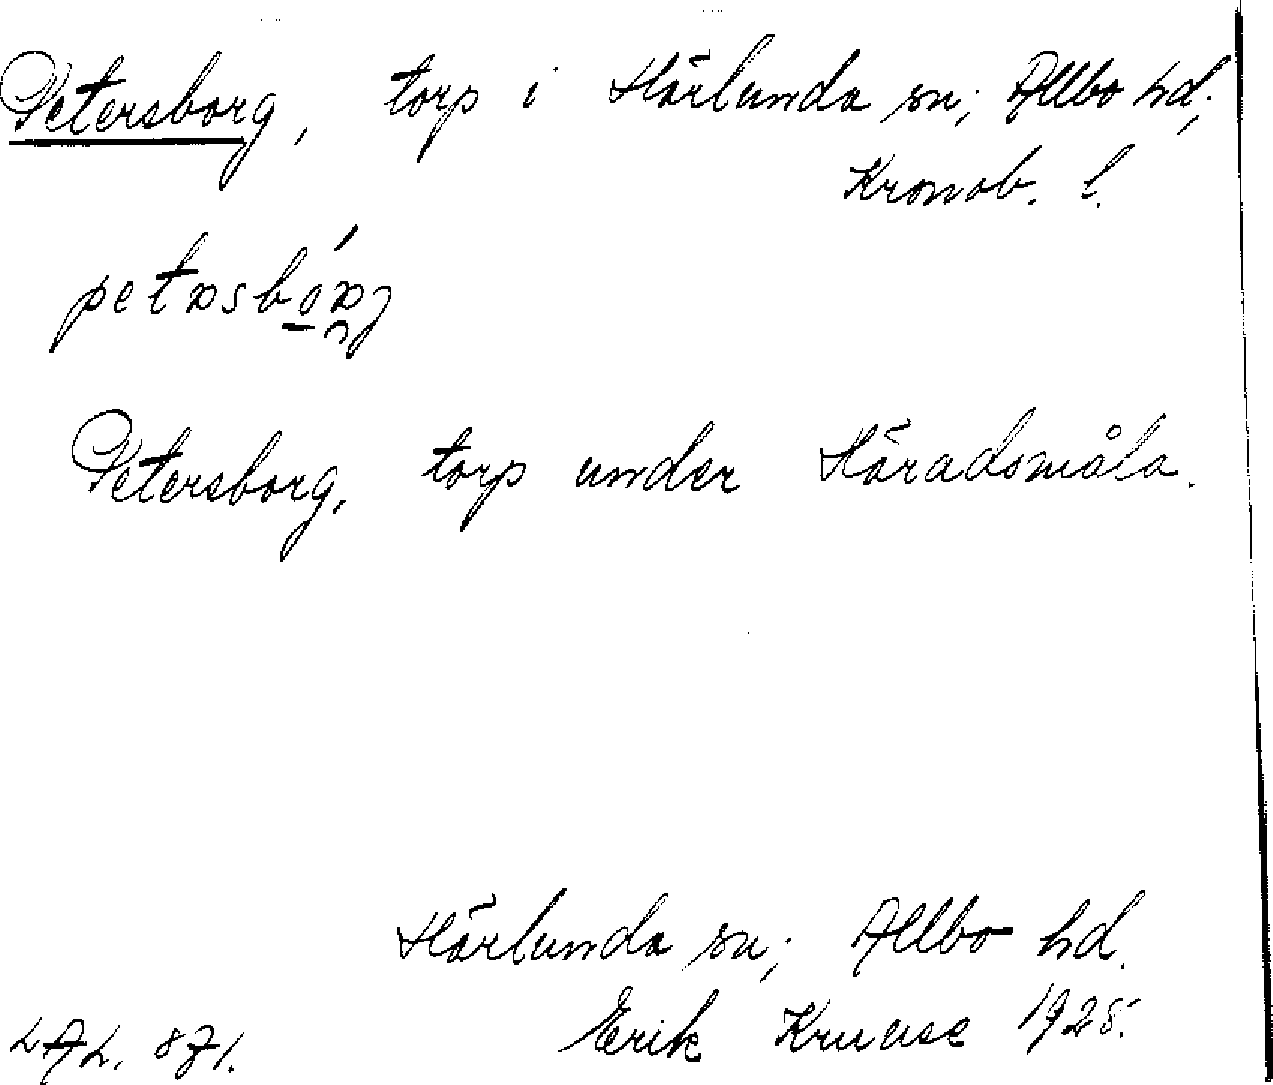 Petersborg, torp i Härlunda sn; Allbo hd;
Kronob. l.
Petersborg, torp under Häradsmåla.
Härlunda sn; Allbo hd.
Erik Kruuse 1925.
LAL. 871.